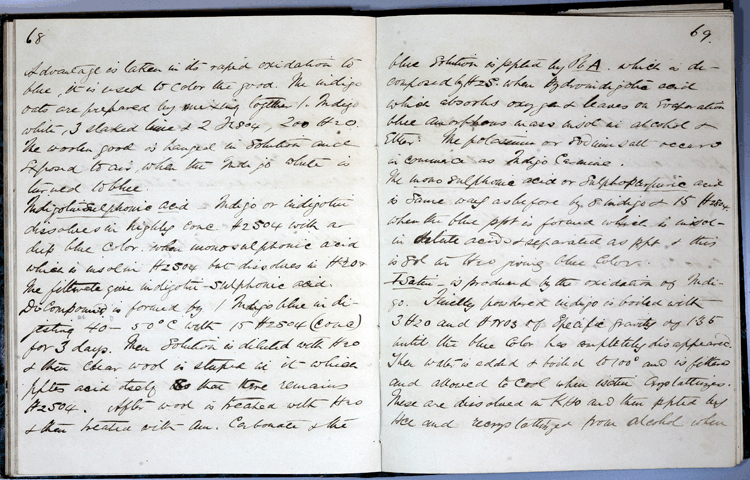 68
Advantage is taken in its rapid oxidation to
blue, it is used to color the good. The indigo
vats are prepared by mixing together 1. Indigo
white, 3 slaked lime & 2 FeSO4, 200 H2O.
The woolen good is hanged in solution and
exposed to air, when the Indigo white is
turned to blue.
Indigotin Sulphonic acid - Indigo or indigotin
dissolves in highly conc H2SO4 with a
deep blue color, when mono sulphonic acid
which is insol in H2SO4 but dissolves in H2O &
the filtrate give indigotin-sulphonic acid.
Di Compound is formed by 1 Indigo blue in di-
gesting 40-50°C with 15 H2SO4 (conc)
for 3 days. Then Solution is diluted with H2O
& then clear wool is steeped in it which
acid so that there remains
H2SO4. After wool is treated with H2O
& then treated with Am. Carbonate & the
69.
blue solution is ppted by PbA. which is de-
composed by H2S. when Hydroindigotic acid
which absorbs oxygen & leaves on Evaporation
blue amorphous mass insol in alcohol &
Ether. The potassium or Sodium salt occurs
in commerce as Indigo Carmine.
The mono sulphonic acid or Sulphopurpuric acid
is Same way as before by 8 indigo & 15 H2SO4.
when the blue ppt is formed which is insol-
in dilute acids & separated as ppt & this
is Sol in H2O giving blue Color.
Isatin is produced by the oxidation of Indi-
go. Finely powdered indigo is boiled with
3 H2O and HNO3 of Specific gravity of 1.35
until the blue Color has completely disappeared.
Then water is added & boiled to 100° and is filtered
and allowed to Cool when isatin Crystallizes.
These are dissolved in KHO and then ppted by
HCl and recrystallized from alcohol when